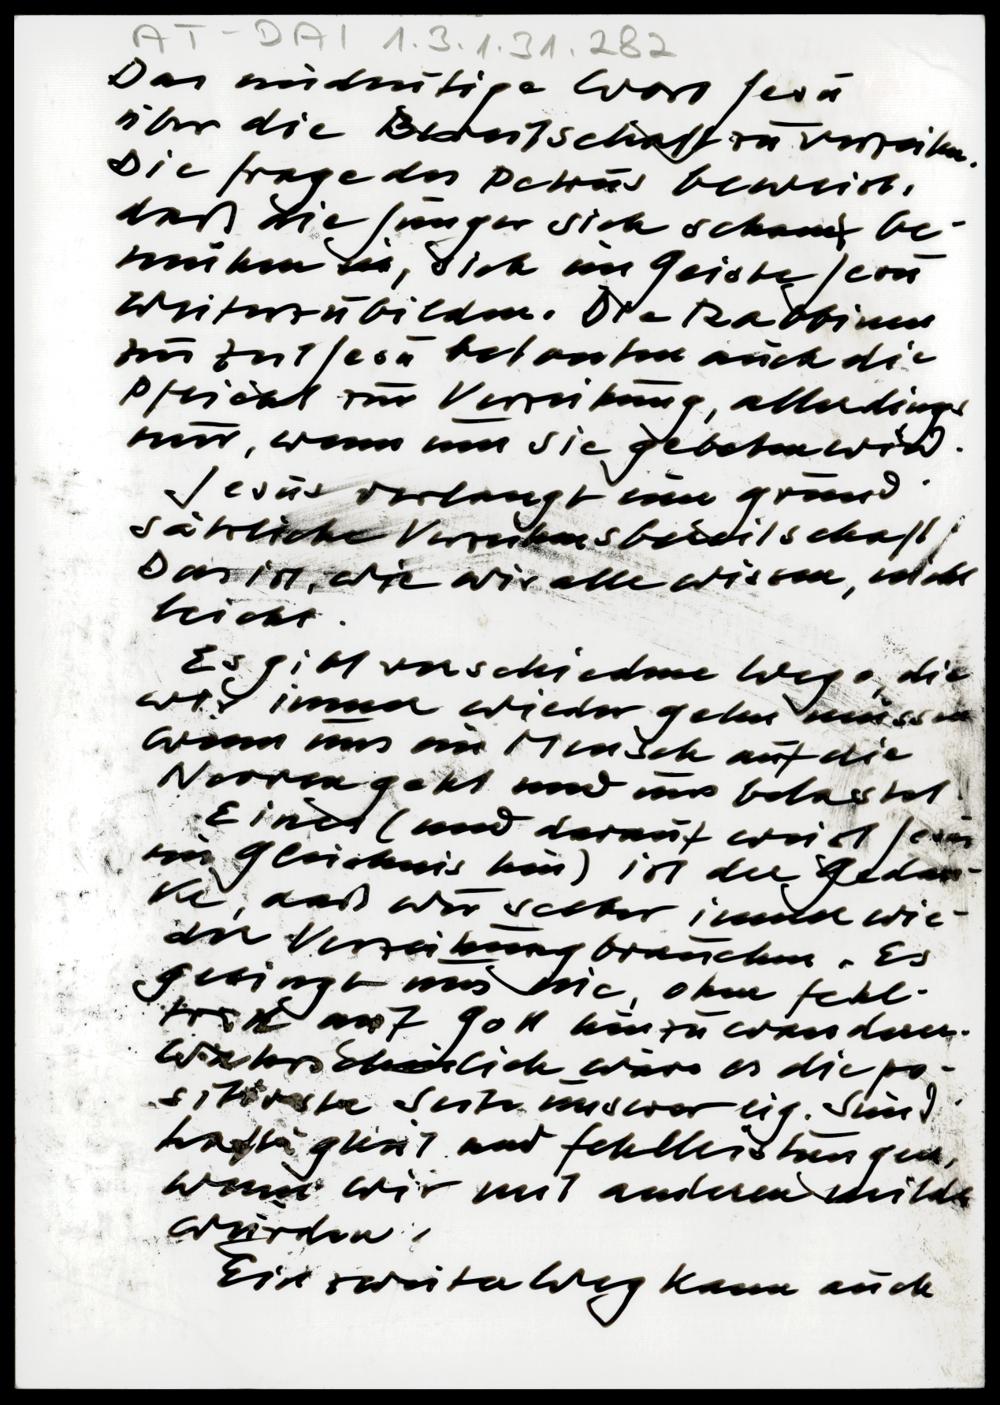 AT-DAI 1.3.1.31.282
Das eindeutige Wort Jesu
über die Bereitschaft zu verzeihen.
Die Frage des Petrus beweist,
daß die Jünger sich schon be-
mühen, sich im Geiste Jesu
weiterzubilden. Die Rabbinen
zur Zeit Jesu betonten auch die
Pflicht zur Verzeihung, allerdings
nur, wenn um sie gebeten wird.
Jesus verlangt eine grund-
sätzliche Verzeihensbereitschaft!
Das ist, wie wir alle wissen, nicht
leicht.
Es gibt verschiedene Wege, die
wir immer wieder gehen müssen
wenn uns ein Mensch auf die
Nerven geht und uns belastet.
Einer (und darauf weist Jesus
im Gleichnis hin) ist der Gedan-
ke, daß wir selber immer wie-
der Verzeihung brauchen. Es
gelingt uns nie, ohne Fehl-
tritt auf Gott hinzuwandern.
Wahrscheinlich wäre es die po-
sitivste Seite unserer eig. Sünd-
haftigkeit und Fehlleistungen,
wenn wir mit anderen milde
würden.
Ein zweiter Weg kann auch